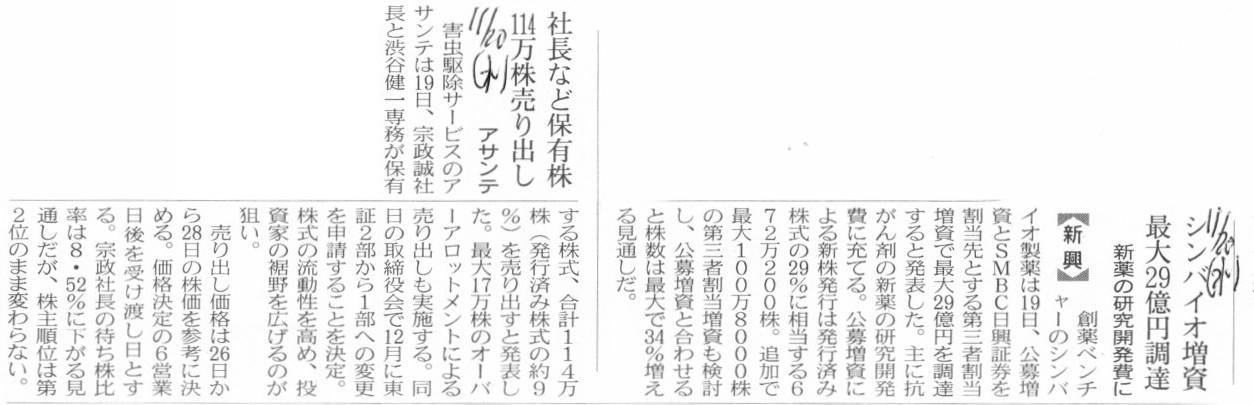 シンバイオ増資
最大29億円調達
新薬の研究開発費に
11/20(水)
【新興】
創薬ベンチ
ャーのシンバ
イオ製薬は19日、公募増
資とSMBC日興証券を
割当先とする第三者割当
増資で最大29億円を調達
すると発表した。主に抗
がん剤の新薬の研究開発
費に充てる。公募増資に
よる新株発行は発行済み
株式の29%に相当する6
72万200株。追加で
最大100万8000株
の第三者割当増資も検討
し、公募増資と合わせる
と株数は最大で34%増え
る見通しだ。
社長など保有株
114万株売り出し
アサンテ
11/20(水)
害虫駆除サービスのア
サンテは19日、宗政誠社
長と渋谷健一専務が保有
する株式、合計114万
株(発行済み株式の約9
%)を売り出すと発表し
た。最大17万株のオーバ
ーアロットメントによる
売り出しも実施する。同
日の取締役会で12月に東
証2部から1部への変更
を申請することを決定。
株式の流動性を高め、投
資家の裾野を広げるのが
狙い。
売り出し価格は26日か
ら28日の株価を参考に決
める。価格決定の6営業
日後を受け渡し日とす
る。宗政社長の待ち株比
率は8・52%に下がる見
通しだが、株主順位は第
2位のまま変わらない。